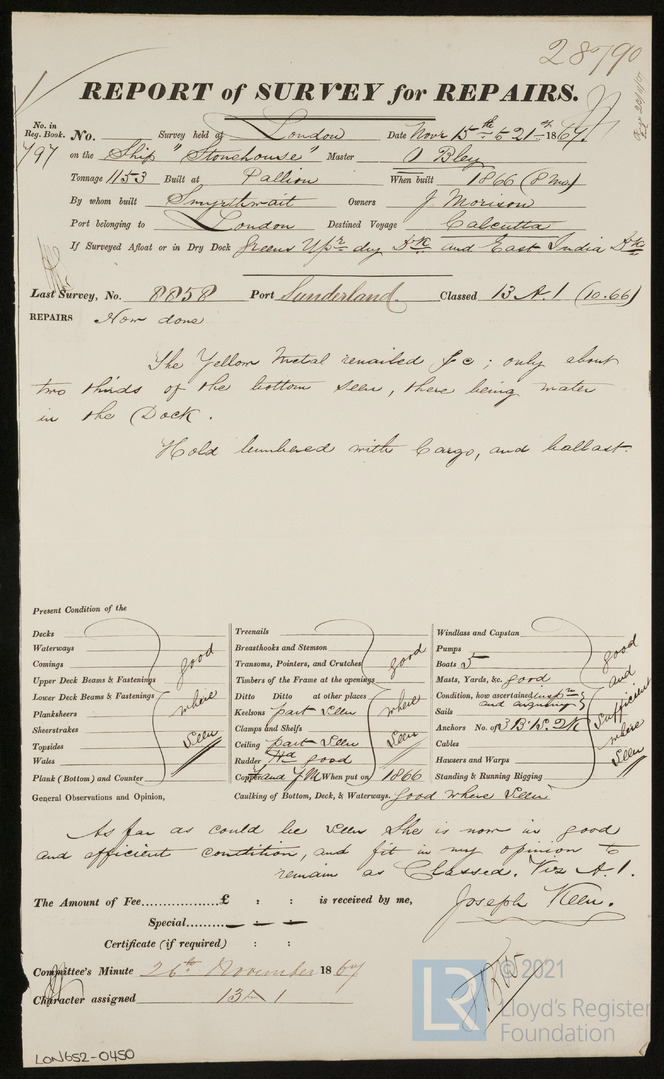 28790
REPORT of SURVEY for REPAIRS.
No. in Reg. Book. No. Survey held at London Date Novr 15th to 21st 1867.
797 on the Ship "Stonehouse" Master O Bley
Tonnage 1153 Built at Pallion When built 1866 (8 mo)
By whom built Smyrthwait Owners J Morison
Port belonging to London Destined Voyage Calcutta
If Surveyed Afloat or in Dry Dock Greens Upr dry Dk and East India Dk
Last Survey, No. 8858 Port Sunderland. Classed 13 A.1 (10.66)
REPAIRS Now done
The Yellow Metal renailed &c; only about
two thirds of the bottom seen, there being water
in the Dock.
Hold lumbered with Cargo, and ballast.
Present Condition of the
Decks
Waterways
Comings
Upper Deck Beams & Fastenings
Lower Deck Beams & Fastenings
Planksheers
Sheerstrakes
Topsides
Wales
Plank (Bottom) and Counter
good where seen
Treenails
Breasthooks and Stemson
Transoms, Pointers, and Crutches
Timbers of the Frame at the openings
Ditto Ditto at other places
Keelsons part seen
Clamps and Shelfs
Ceiling part seen
Rudder good
Copper and YM When put on 1866
good where seen
Windlass and Capstan
Pumps
Boats 5
Masts, Yards, &c. good
Condition, how ascertained
and enquiry
Sails
Anchors No. of 3 B. 1 S. 2 K
Cables
Hawsers and Warps
Standing & Running Rigging
good and sufficient where seen
General Observations and Opinion, Caulking of Bottom, Deck, & Waterways. good where seen
As far as could be seen She is now in good
and efficient condition, and fit in my opinion to
remain as Classed. Viz A.1.
The Amount of Fee £ : : is received by me, Joseph Keen.
Special
Certificate (if required) : :
Committee's Minute 26th November 1867
Character assigned 13 A 1
LON652-0450
LR
© 2021
Lloyd's Register
Foundation